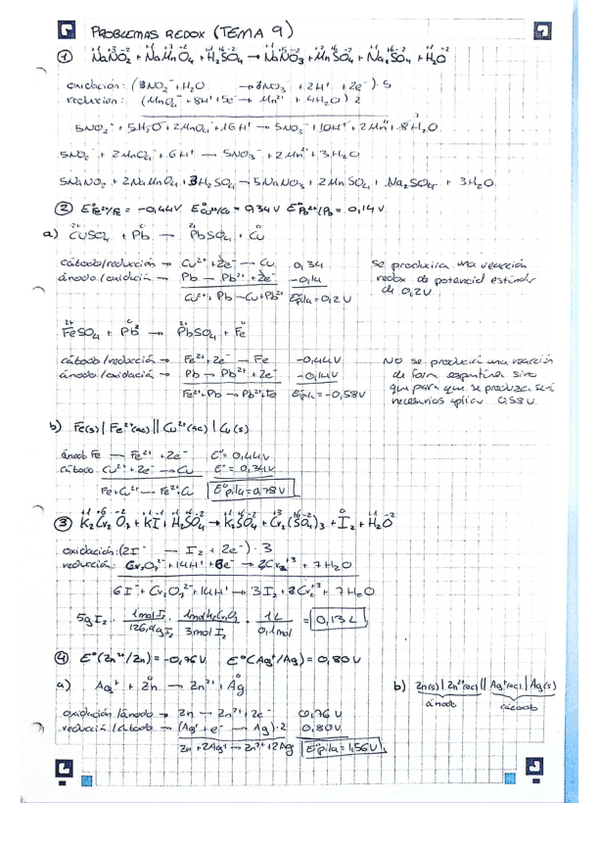 PROBLEMAS REDOX (TEMA 9)
① NaNO₂ + NaMnO₄ + H₂SO₄ → NaNO₃ + MnSO₄ + Na₂SO₄ + H₂O
oxidación: (NO₂⁻ + H₂O → NO₃⁻ + 2H⁺ + 2e⁻) · 5
reduccion: (MnO₄⁻ + 8H⁺ + 5e⁻ → Mn²⁺ + 4H₂O) 2
5NO₂⁻ + 5H₂O + 2MnO₄⁻ + 16H⁺ → 5NO₃⁻ + 10H⁺ + 2Mn²⁺ + 8H₂O
5NO₂⁻ + 2MnO₄⁻ + 6H⁺ → 5NO₃⁻ + 2Mn²⁺ + 3H₂O
5NaNO₂ + 2NaMnO₄ + 3H₂SO₄ → 5NaNO₃ + 2MnSO₄ + Na₂SO₄ + 3H₂O
② E°Fe²⁺/Fe = -0,44V E°Cu²⁺/Cu = 0,34V E°Pb²⁺/Pb = 0,14V
a) CuSO₄ + Pb → PbSO₄ + Cu
cátodo/reducción → Cu²⁺ + 2e⁻ → Cu 0,34
ánodo/oxidación → Pb → Pb²⁺ + 2e⁻ -0,14
Cu²⁺ + Pb → Cu + Pb²⁺ E°pila = 0,2V
Se producira una reacción
redox de potencial estándar
de 0,2V
FeSO₄ + Pb → PbSO₄ + Fe
cátodo/reducción → Fe²⁺ + 2e⁻ → Fe -0,44V
ánodo/oxidación → Pb → Pb²⁺ + 2e⁻ -0,14V
Fe²⁺ + Pb → Pb²⁺ + Fe E°pila = -0,58V
NO se producirá una reacción
de forma espontina sino
que para que se produzca será
necesarios aplicar 0,58V.
b) Fe(s) | Fe²⁺(ac) || Cu²⁺(ac) | Cu(s)
ánodo Fe → Fe²⁺ + 2e⁻ E° = 0,44V
cátodo Cu²⁺ + 2e⁻ → Cu E° = 0,34V
Fe + Cu²⁺ → Fe²⁺ + Cu E°pila = 0,78V
③ K₂Cr₂O₇ + KI + H₂SO₄ → K₂SO₄ + Cr₂(SO₄)₃ + I₂ + H₂O
oxidación: (2I⁻ → I₂ + 2e⁻) · 3
reducción: Cr₂O₇²⁻ + 14H⁺ + 6e⁻ → 2Cr⁺³ + 7H₂O
6I⁻ + Cr₂O₇²⁻ + 14H⁺ → 3I₂ + 2Cr⁺³ + 7H₂O
5g I₂ · 1mol I₂ / 126,9g I₂ · 1mol K₂Cr₂O₇ / 3mol I₂ · 1L / 0,1mol = 0,13L
④ E°(Zn²⁺/Zn) = -0,76V E°(Ag⁺/Ag) = 0,80V
a) Ag⁺ + Zn → Zn²⁺ + Ag
oxidación/ánodo → Zn → Zn²⁺ + 2e⁻ 0,76V
reducción/cátodo → (Ag⁺ + e⁻ → Ag) · 2 0,80V
Zn + 2Ag⁺ → Zn²⁺ + 2Ag E°pila = 1,56V
b) Zn(s) | Zn²⁺(ac) || Ag⁺(ac) | Ag(s)
ánodo cátodo